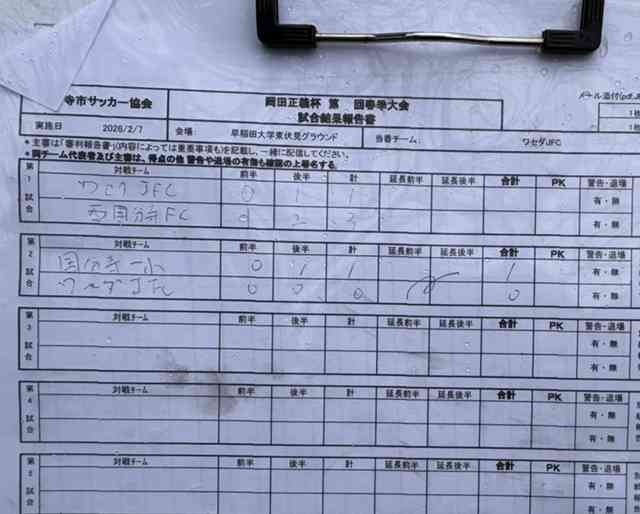 寺市サッカー協会 岡田正義杯 第 回春季大会 メール添付(pdf.J
試合結果報告書
実施日 2026/2/7 会場: 早稲田大学東伏見グラウンド 当番チーム: ワセダJFC
*主審は「審判報告書」(内容によっては重要事項も)を記載し、一緒に配信してください。
*両チーム代表者及び主審は、得点の他 警告や退場の有無も確認の上署名する。
第1試合 対戦チーム 前半 後半 計 延長前半 延長後半 合計 PK 警告・退場
JFC 0 1 1 有・無
西国分寺FC 2 有・無
第2試合 対戦チーム 前半 後半 計 延長前半 延長後半 合計 PK 警告・退場
国分寺一小 0 1 1 1 有・無
0 0 0 0 有・無
第3試合 対戦チーム 前半 後半 計 延長前半 延長後半 合計 PK 警告・退場
有・無
有・無
第4試合 対戦チーム 前半 後半 計 延長前半 延長後半 合計 PK 警告・退場
有・無
有・無
第5試合 対戦チーム 前半 後半 計 延長前半 延長後半 合計 PK 警告・退場
有・無